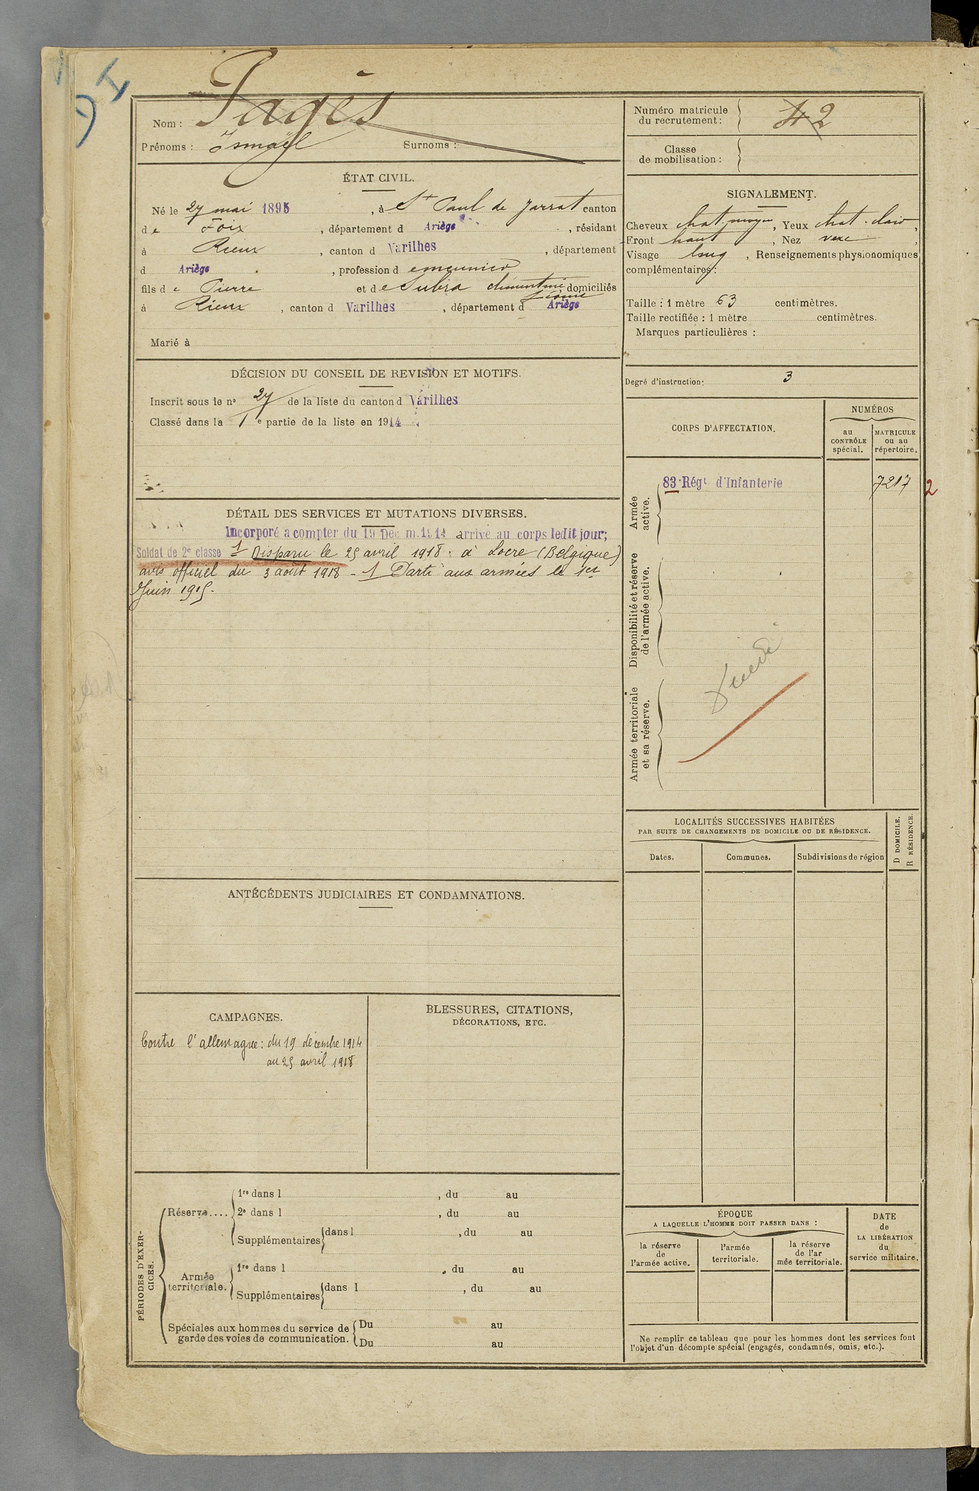 Nom : Pagès
Prénoms : Ismaÿl Surnoms :
ÉTAT CIVIL.
Né le 27 mai 1895, à St Paul de Jarrat canton
de Foix, département d Ariège, résidant
à Rieux, canton d Varilhes, département
d Ariège, profession d
fils de Pierre et de Subra clémentine domiciliés
à Rieux, canton d Varilhes, département d Ariège
Marié à
DÉCISION DU CONSEIL DE REVISION ET MOTIFS.
Inscrit sous le n° 27 de la liste du canton d Varilhes
Classé dans la 1e partie de la liste en 1914.
DÉTAIL DES SERVICES ET MUTATIONS DIVERSES.
Incorporé a compter du 19 Déc m. 1914 arrivé au corps ledit jour;
Soldat de 2e classe 1 Disparu le 25 avril 1918 : à Locre (Belgique)
avis officiel du 3 août 1918 - 1 Parti aux armées le 1er
Juin 1915.
ANTÉCÉDENTS JUDICIAIRES ET CONDAMNATIONS.
CAMPAGNES.
Contre l'allemagne : du 19 décembre 1914
au 25 avril 1918
BLESSURES, CITATIONS,
DÉCORATIONS, ETC.
PÉRIODES D'EXER-
CICES.
Réserve....
1re dans l , du au
2e dans l , du au
Supplémentaires dans l , du au
Armée
territoriale.
1re dans l , du au
Supplémentaires dans l , du au
Spéciales aux hommes du service de
garde des voies de communication.
Du au
Du au
Numéro matricule
du recrutement : 42
Classe
de mobilisation :
SIGNALEMENT.
Cheveux chat. moyen, Yeux chat. clair,
Front haut, Nez vexe,
Visage long, Renseignements physionomiques
complémentaires :
Taille : 1 mètre 63 centimètres.
Taille rectifiée : 1 mètre centimètres.
Marques particulières :
Degré d'instruction : 3
CORPS D'AFFECTATION.
NUMÉROS
au
CONTRÔLE
spécial.
MATRICULE
ou au
répertoire.
Armée
active.
83 Régt d'Infanterie 7217 2
Disponibilité et réserve
de l'armée active.
Armée territoriale
et sa réserve.
LOCALITÉS SUCCESSIVES HABITÉES
PAR SUITE DE CHANGEMENTS DE DOMICILE OU DE RÉSIDENCE.
Dates. Communes. Subdivisions de région
D DOMICILE.
R RÉSIDENCE.
ÉPOQUE
A LAQUELLE L'HOMME DOIT PASSER DANS :
la réserve
de
l'armée active.
l'armée
territoriale.
la réserve
de l'ar
mée territoriale.
DATE
de
LA LIBÉRATION
du
service militaire.
Ne remplir ce tableau que pour les hommes dont les services font
l'objet d'un décompte spécial (engagés, condamnés, omis, etc.).